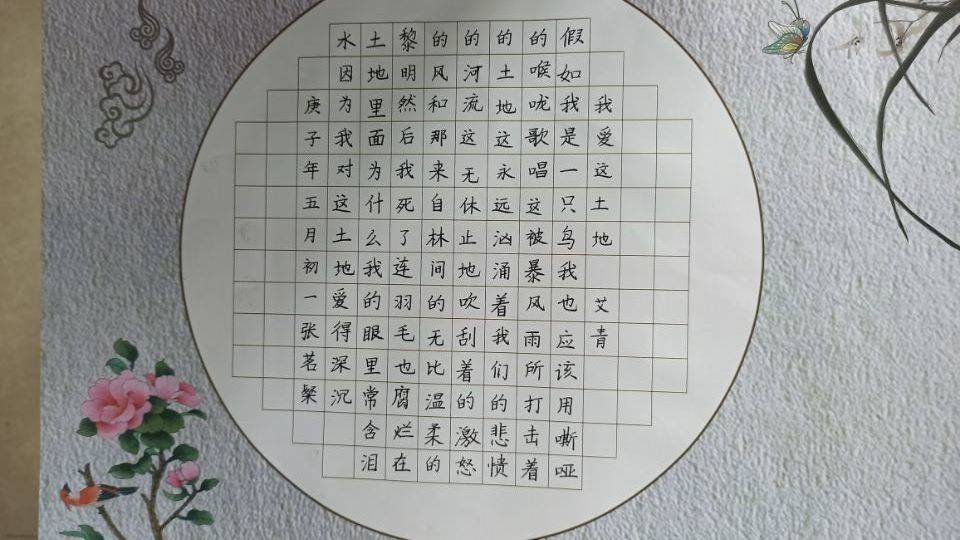 我爱这土地 艾青
假如我是一只鸟我也应该用嘶哑
的喉咙歌唱这被暴风雨所打击着
的土地这永远汹涌着我们的悲愤
的河流这无休止地吹刮着的激怒
的风和那来自林间的无比温柔的
黎明然后我死了莲羽毛也腐烂在
土地里面为什么我的眼里常含泪
水因为我对这土地爱得深沉
庚子年五月初一张茗粲